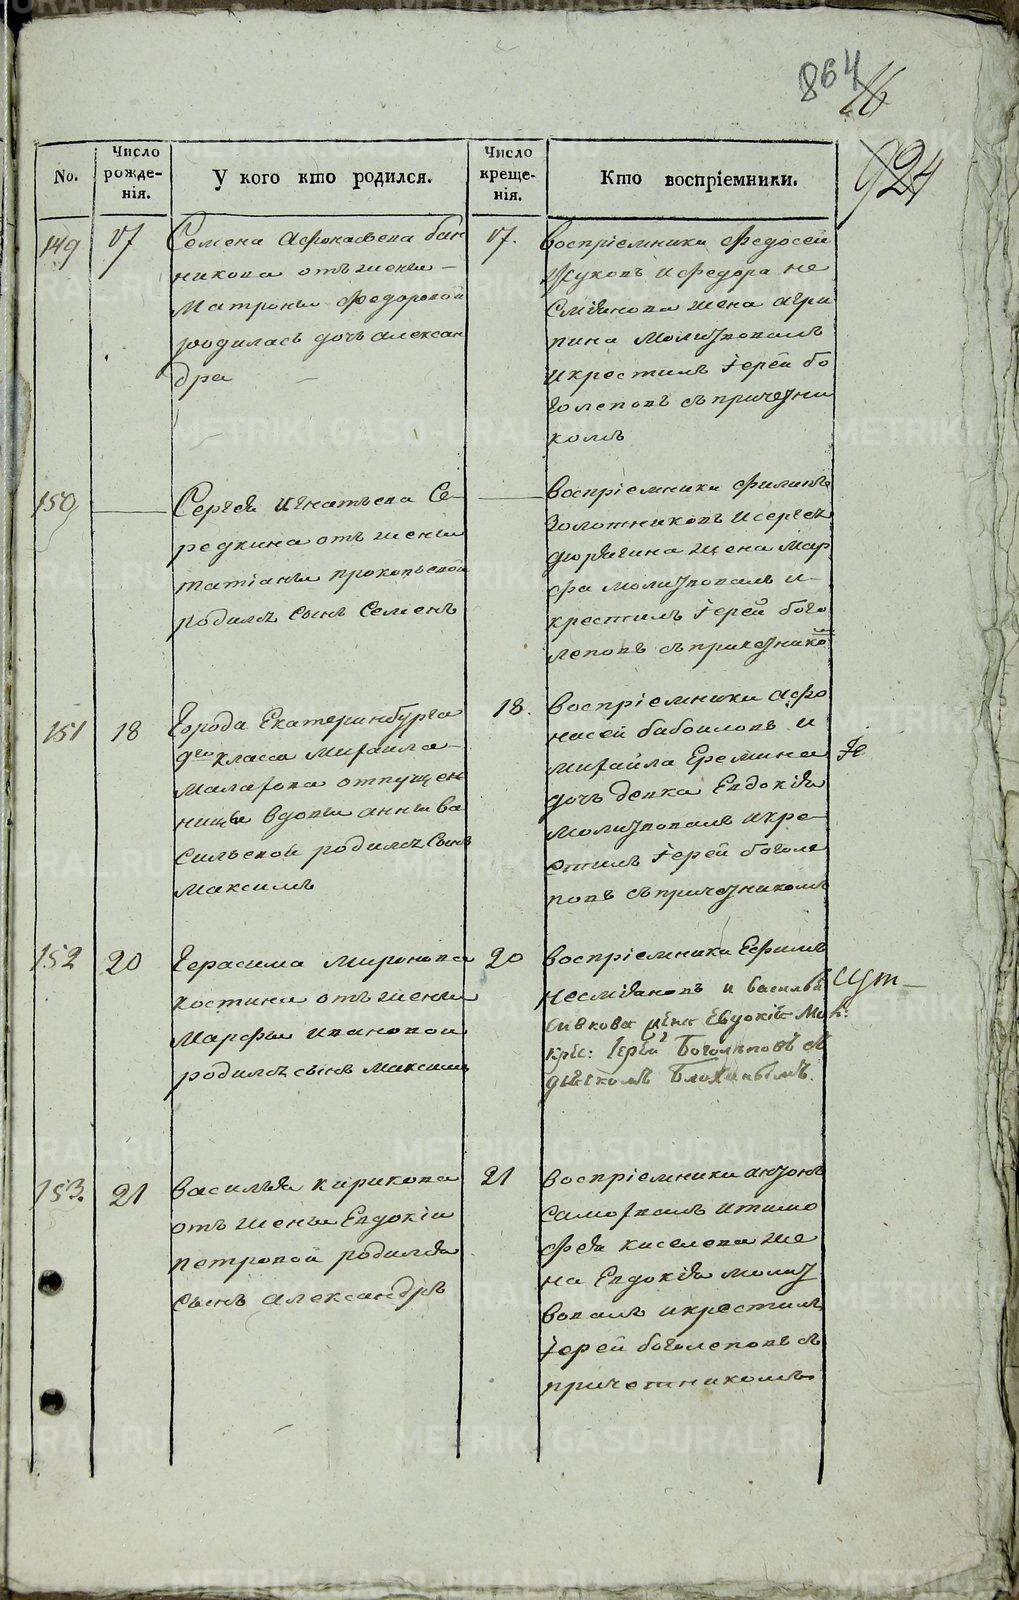 864
16
924
No.
Число рожде-нія.
У кого кто родился.
Число креще-нія.
Кто воспріемники.
149
17
Семена Афонасьева бан
никова отъ жены
Матроны Федоровой
родилась дочь алексан
дра
17.
Воспріемники Федосей
Жуковъ и Федора не
смѣянова жена агри
пина молитвовалъ
и крестилъ Іерей бо
голеповъ съ причетни
комъ
150
Сергея игнатьева Се-
редкина отъ жены
татіаны прокопьевой
родился сынъ Семенъ
воспріемники филипъ
золотниковъ и сергея
дюрягина жена мар
фа молитвовалъ и
крестилъ Іерей бого
леповъ съ причетнико
151
18
Города Екатеринбурга
9го класса Михаила
Малахова отпущен
ницы вдовы анны ва
сильевой родился сынъ
Максимъ
18.
воспріемники афо
насей бабоиловъ и
михайла Еремина
дочь девка Евдокія
молитвовалъ и кре
стилъ Іерей боголе
повъ съ причетникомъ
152
20
Герасима миронова
костина отъ жены
Марфы ивановой
родился сынъ Максимъ
20
воспріемники Ефимъ
несмѣяновъ и Василья
сивкова жена Евдокія Мол:
крес: Іерей Боголѣповъ съ
дьячкомъ Блохинымъ.
153.
21
василья кирикова
отъ жены Евдокіи
петровой родился
сынъ александръ
21
воспріемники антонъ
самохвалъ и тимо
фея киселева же
на Евдокія молит
вовалъ и крестилъ
Іерей боголеповъ съ
причетникомъ